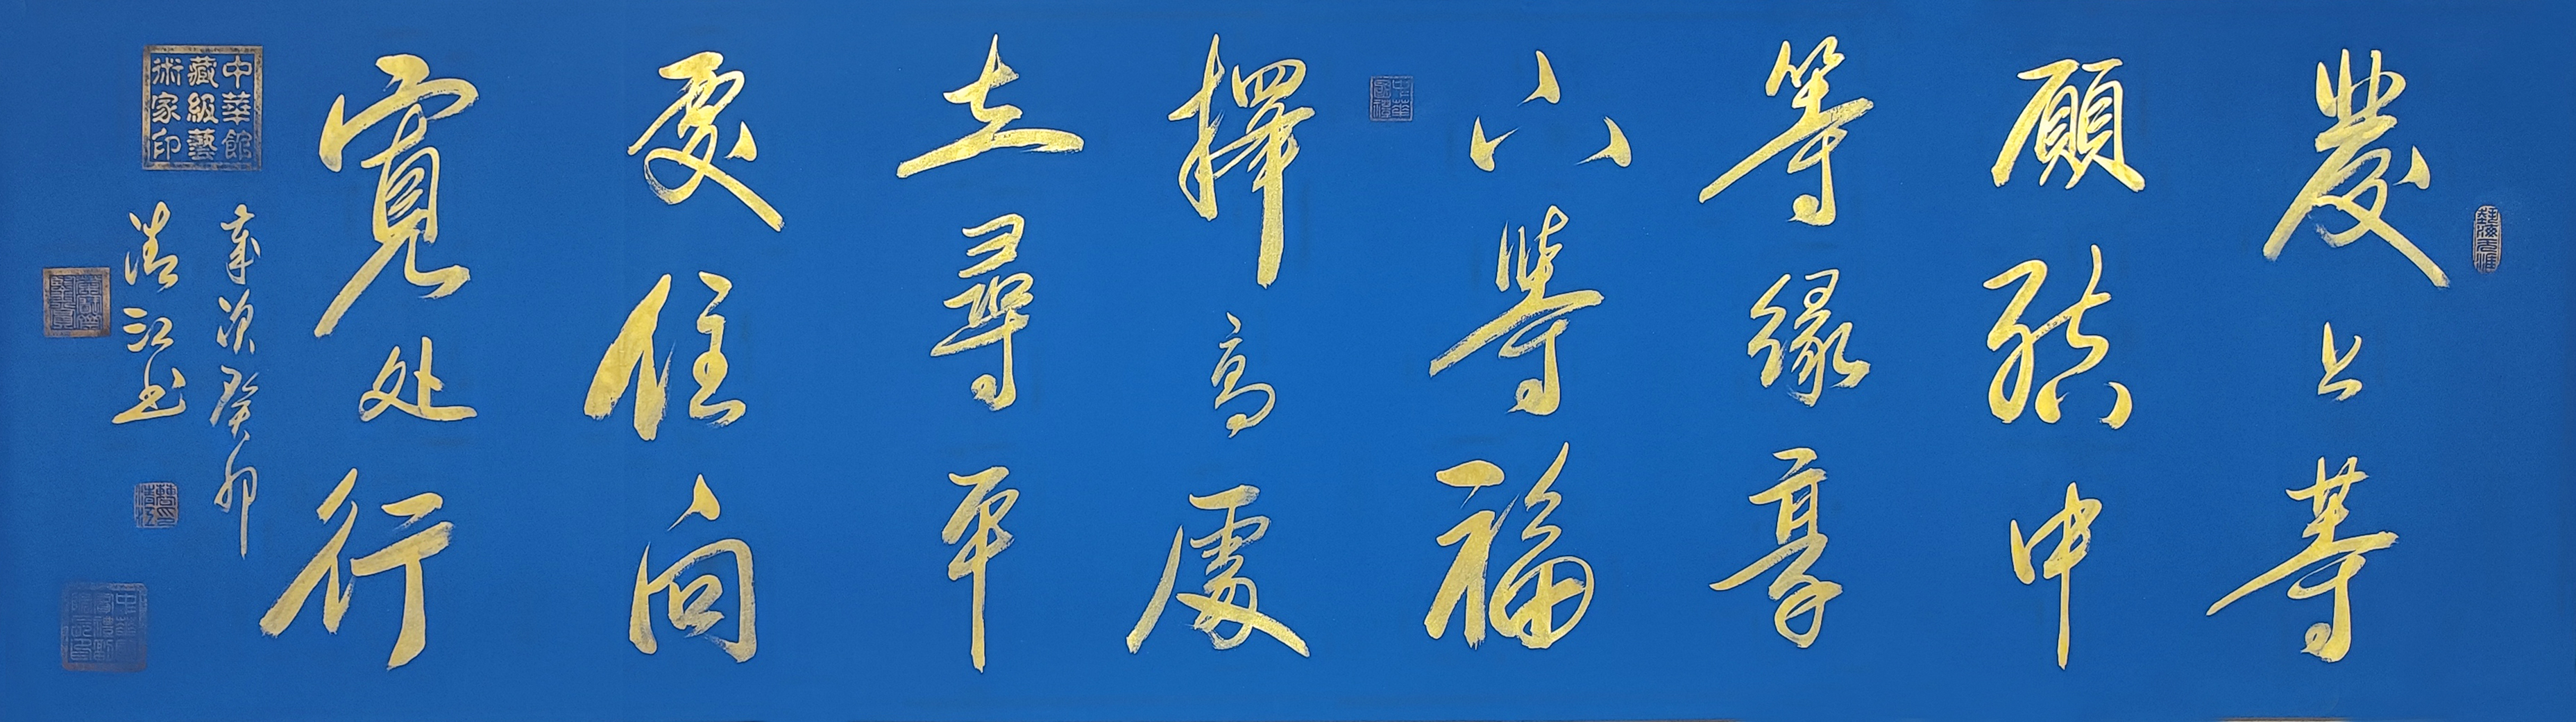 發上等
願結中
等緣享
下等福
擇高處
立尋平
處住向
寬处行
歲次癸卯
清江书
中華館
藏級藝
術家印